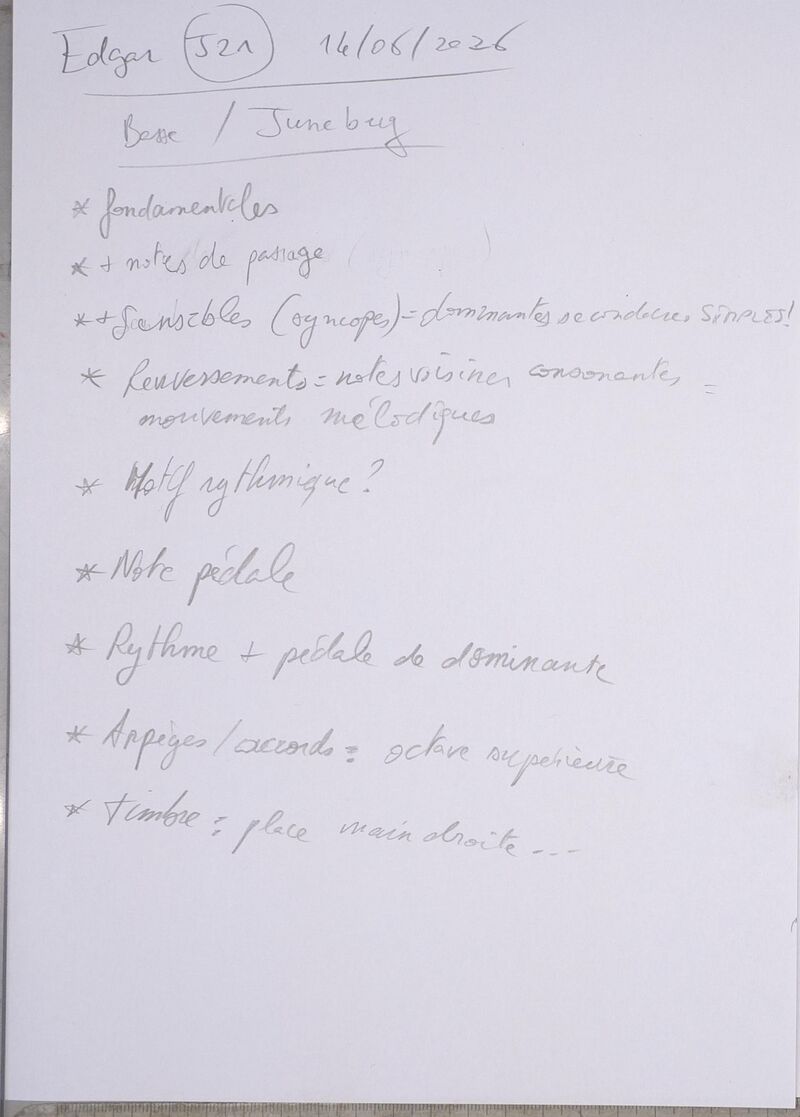 Edgar J21 14/06/2026
Basse / Junebug
* fondamentales
* + notes de passage
* + Sensibles (syncopes) = dominantes secondaires SIMPLES!
* Renversements = notes voisines consonantes =
mouvements mélodiques
* Motif rythmique?
* Note pédale
* Rythme + pédale de dominante
* Arpèges / accords = octave supérieure
* timbre = place main droite ...